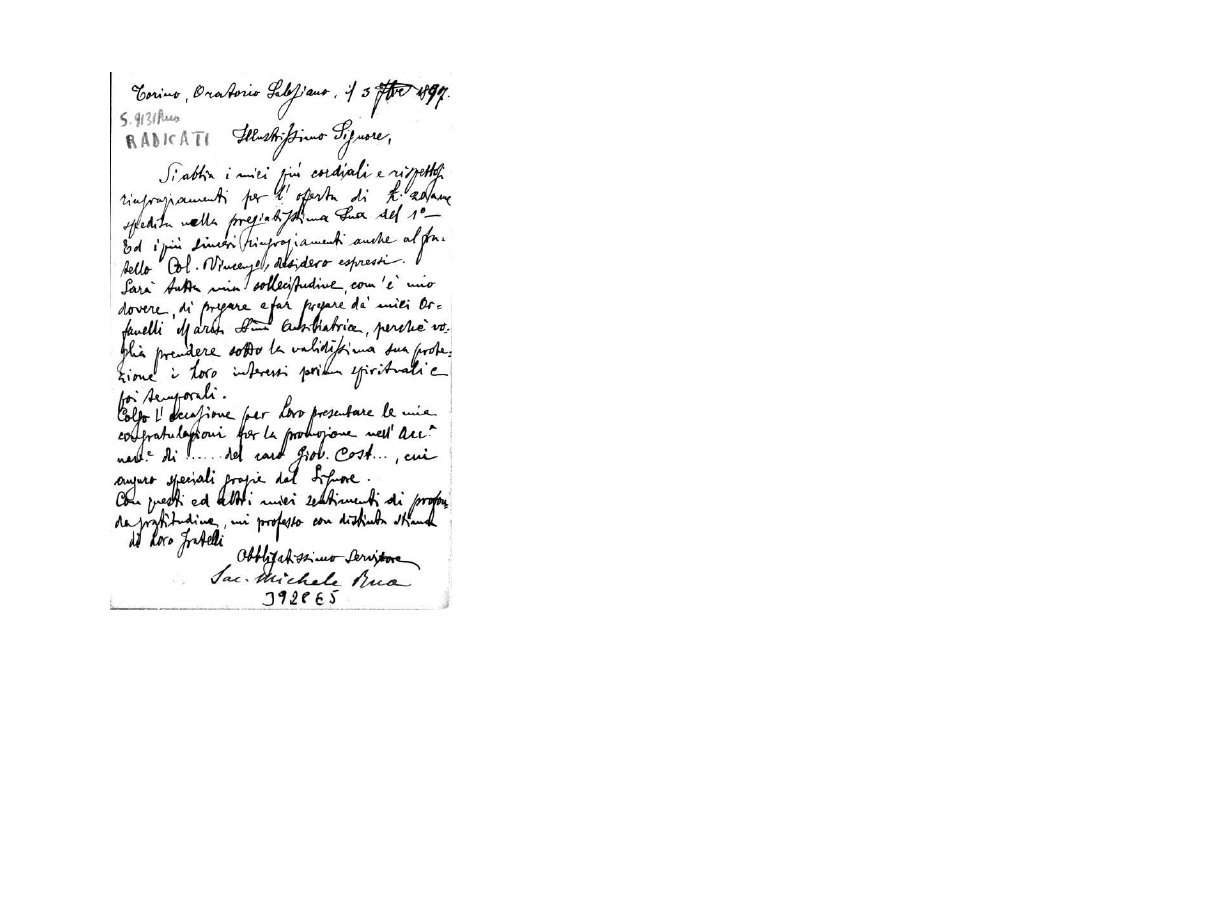 Torino, Oratorio Salesiano, il 3 7bre 1897.
S. 9131 Rua
RADICATI
Illustrissimo Signore,
Si abbia i miei più cordiali e rispettosi
ringraziamenti per l'offerta di £.
spedita nella pregiatissima Sua del 1°—
Ed i più sinceri ringraziamenti anche al fra-
tello Col. Vincenzo, desidero espressi.
Sarà tutta mia sollecitudine, com'è mio
dovere, di pregare e far pregare da' miei Or=
fanelli Maria SSma Ausiliatrice, perchè vo-
glia prendere sotto la validissima sua prote-
zione i Loro interessi prima spirituali e
poi temporali.
Colgo l'occasione per Loro presentare le mie
congratulazioni per la promozione nell'
di ...... del caro Giov. Cost..., cui
auguro speciali grazie dal Signore.
Con questi ed altri miei sentimenti di profon-
da gratitudine, mi professo con distinta stima
di Loro fratelli
Obbligatissimo Servitore
Sac. Michele Rua
392 E5